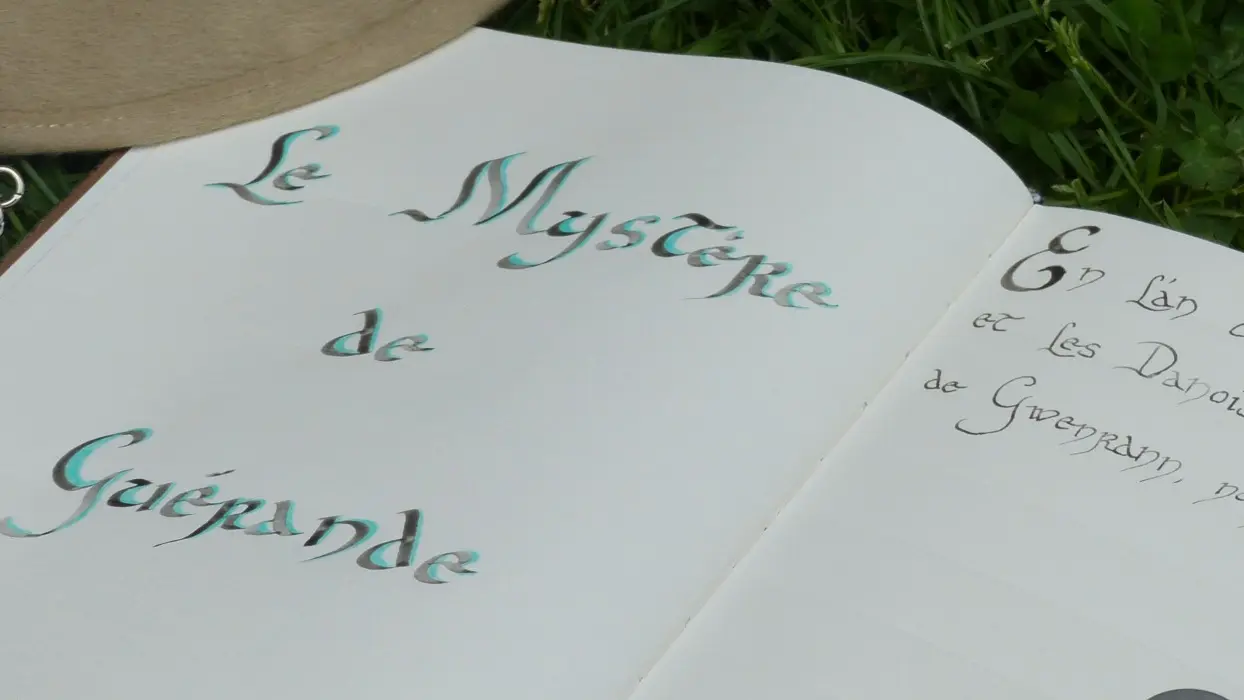 Le Mystère
de
Guérande
En L'an
et Les Danois
de Gwenrann,